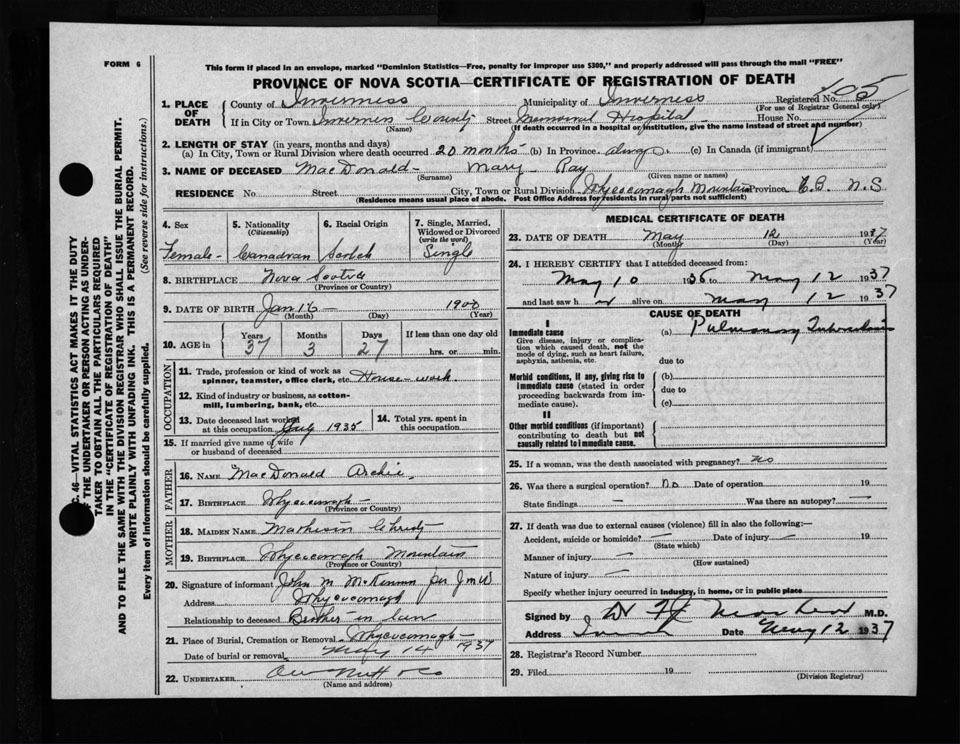 FORM 6
This form if placed in an envelope, marked "Dominion Statistics—Free, penalty for improper use $300," and properly addressed will pass through the mail "FREE"
PROVINCE OF NOVA SCOTIA—CERTIFICATE OF REGISTRATION OF DEATH
1. PLACE OF DEATH County of Inverness Municipality of Inverness Registered No. 605
(For use of Registrar General only)
If in City or Town Inverness County Street Memorial Hospital House No.
(Name) (If death occurred in a hospital or institution, give the name instead of street and number)
2. LENGTH OF STAY (in years, months and days)
(a) In City, Town or Rural Division where death occurred 20 months (b) In Province always (c) In Canada (if immigrant)
3. NAME OF DECEASED MacDonald Mary Ray
(Surname) (Given name or names)
RESIDENCE No. Street City, Town or Rural Division Whycocomagh Mountain Province C.B. N.S
(Residence means usual place of abode. Post Office Address for residents in rural parts not sufficient)
4. Sex 5. Nationality (Citizenship) 6. Racial Origin 7. Single, Married, Widowed or Divorced (write the word)
Female Canadian Scotch Single
8. BIRTHPLACE Nova Scotia
(Province or Country)
9. DATE OF BIRTH Jan 16 1900
(Month) (Day) (Year)
10. AGE in Years Months Days If less than one day old
37 3 27 hrs. or min.
OCCUPATION
11. Trade, profession or kind of work as spinner, teamster, office clerk, etc. House-work
12. Kind of industry or business, as cotton-mill, lumbering, bank, etc.
13. Date deceased last worked at this occupation July 1935
14. Total yrs. spent in this occupation
15. If married give name of wife or husband of deceased
FATHER
16. NAME MacDonald Archie
17. BIRTHPLACE Whycocomagh
(Province or Country)
MOTHER
18. MAIDEN NAME Matheson Christy
19. BIRTHPLACE Whycocomagh Mountain
(Province or Country)
20. Signature of informant John M McKinnon per J.M.W
Address Whycocomagh
Relationship to deceased Brother in law
21. Place of Burial, Cremation or Removal Whycocomagh
Date of burial or removal May 14 1937
22. UNDERTAKER
(Name and address)
MEDICAL CERTIFICATE OF DEATH
23. DATE OF DEATH May 12 1937
(Month) (Day) (Year)
24. I HEREBY CERTIFY that I attended deceased from:
May 10 1936 to May 12 1937
and last saw h alive on May 12 1937
CAUSE OF DEATH
I
Immediate cause (a) Pulmonary Tuberculosis
Give disease, injury or complication which caused death, not the mode of dying, such as heart failure, asphyxia, asthenia, etc.
due to
Morbid conditions, if any, giving rise to immediate cause (stated in order proceeding backwards from immediate cause).
(b)
due to
(c)
II
Other morbid conditions (if important) contributing to death but not causally related to immediate cause.
25. If a woman, was the death associated with pregnancy? No
26. Was there a surgical operation? No Date of operation 19
State findings — Was there an autopsy? —
27. If death was due to external causes (violence) fill in also the following:—
Accident, suicide or homicide? — Date of injury — 19
(State which)
Manner of injury —
(How sustained)
Nature of injury —
Specify whether injury occurred in industry, in home, or in public place
Signed by M.D.
Address Date May 12 1937
28. Registrar's Record Number
29. Filed 19
(Division Registrar)
C. 46—VITAL STATISTICS ACT MAKES IT THE DUTY
OF THE UNDERTAKER OR PERSON ACTING AS UNDER-
TAKER TO OBTAIN ALL THE PARTICULARS REQUIRED
IN THE "CERTIFICATE OF REGISTRATION OF DEATH"
AND TO FILE THE SAME WITH THE DIVISION REGISTRAR WHO SHALL ISSUE THE BURIAL PERMIT.
WRITE PLAINLY WITH UNFADING INK. THIS IS A PERMANENT RECORD.
Every item of information should be carefully supplied. (See reverse side for instructions.)